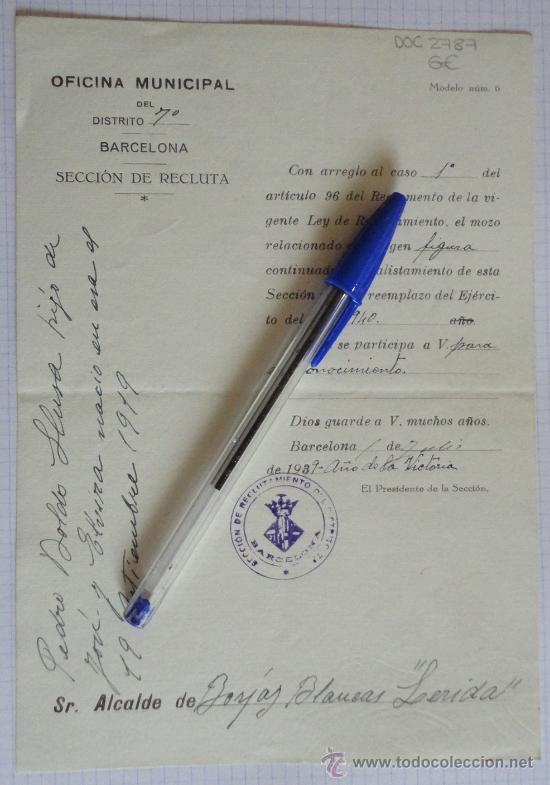 DOC 2787
6€
OFICINA MUNICIPAL
DEL
DISTRITO 7º
BARCELONA
SECCIÓN DE RECLUTA
*
Modelo núm. 6
Con arreglo al caso 1º del
artículo 96 del Re amento de la vi-
gente Ley de Re amiento, el mozo
relacionado gen figura
continuad alistamiento de esta
Sección reemplazo del Ejérci-
to del 940. año.
se participa a V. para
onocimiento.
Dios guarde a V. muchos años.
Barcelona 1 de Julio
de 1939-Año de la Victoria
El Presidente de la Sección,
SECCIÓN DE RECLUTAMIENTO DEL
BARCELONA
Pedro Boldo Llusa hijo de
José y Elvira nacio en esa el
19 Setiembre 1919
Sr. Alcalde de Borjas Blancas "Lerida"
todocoleccion
www.todocoleccion.net